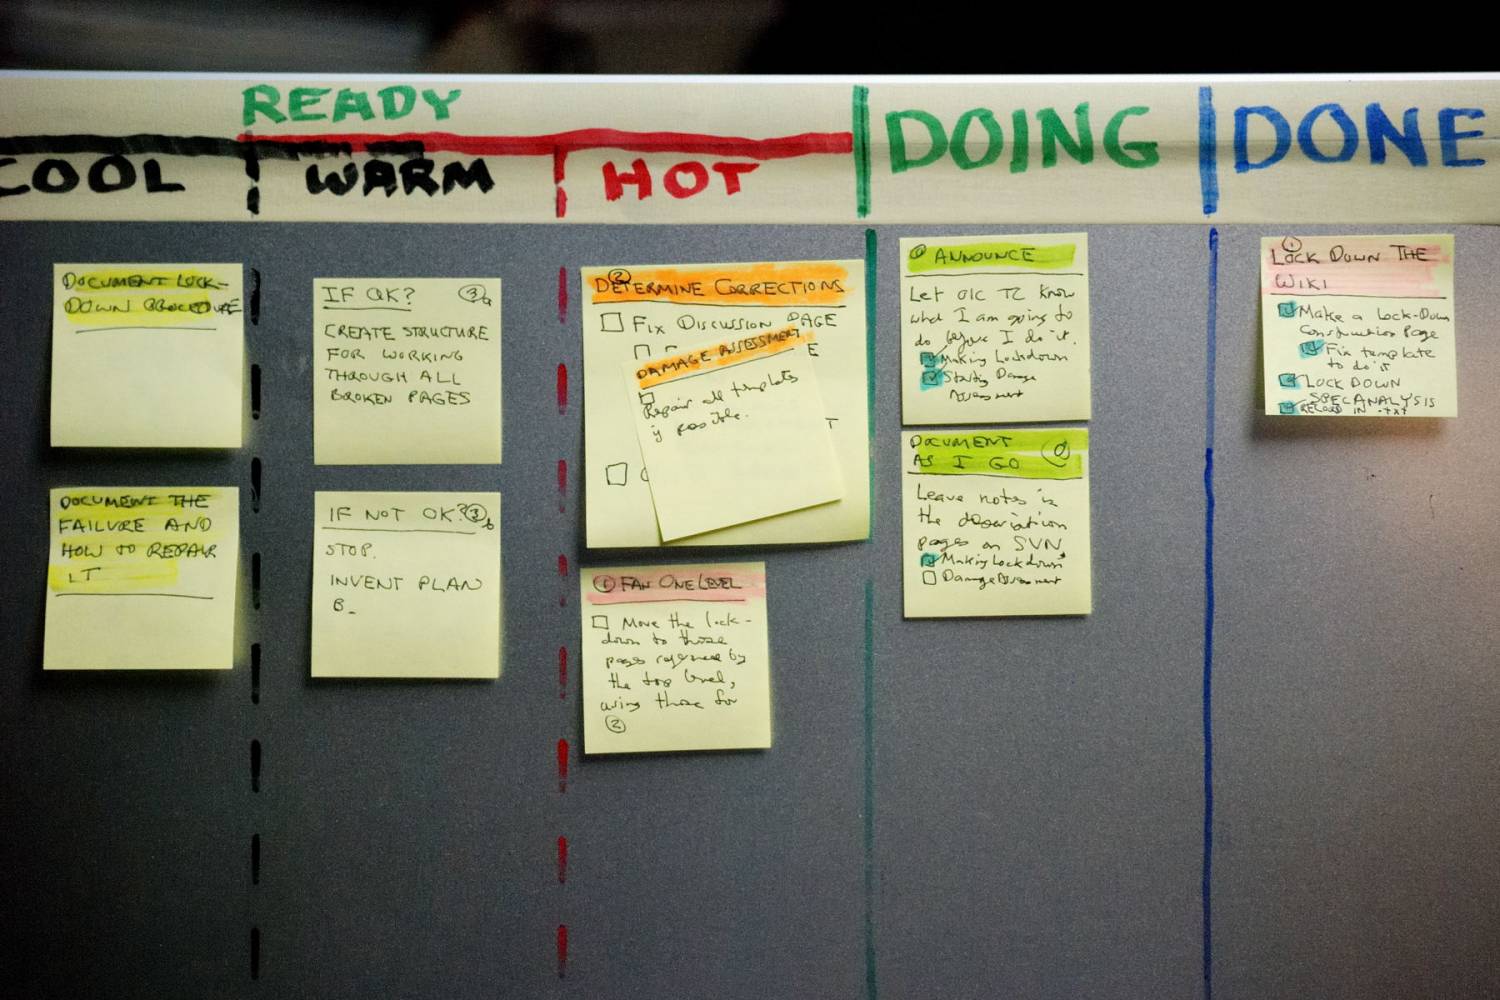 READY
COOL
WARM
HOT
DOING
DONE
DOCUMENT LOCK-
DOWN PROCEDURE
DOCUMENT THE
FAILURE AND
HOW TO REPAIR
IT
IF OK? 3a
CREATE STRUCTURE
FOR WORKING
THROUGH ALL
BROKEN PAGES
IF NOT OK? 3b
STOP.
INVENT PLAN
B_
2
DETERMINE CORRECTIONS
FIX DISCUSSION PAGE
E
DAMAGE ASSESSMENT
Repair all templates
if possible.
T
1 FAN ONE LEVEL
Move the lock-
down to those
pages referenced by
the top level,
using those for
2
0 ANNOUNCE
Let OIC TC know
what I am going to
do before I do it.
Making Lockdown
Starting Damage
Assessment
DOCUMENT
AS I GO 0
Leave notes in
the description
pages on SVN
Making Lockdown
Damage Assessment
1
LOCK DOWN THE
WIKI
Make a Lock-Down
Construction Page
Fix template
to do it
LOCK DOWN
SPECANALYSIS
RECORD IN .txt